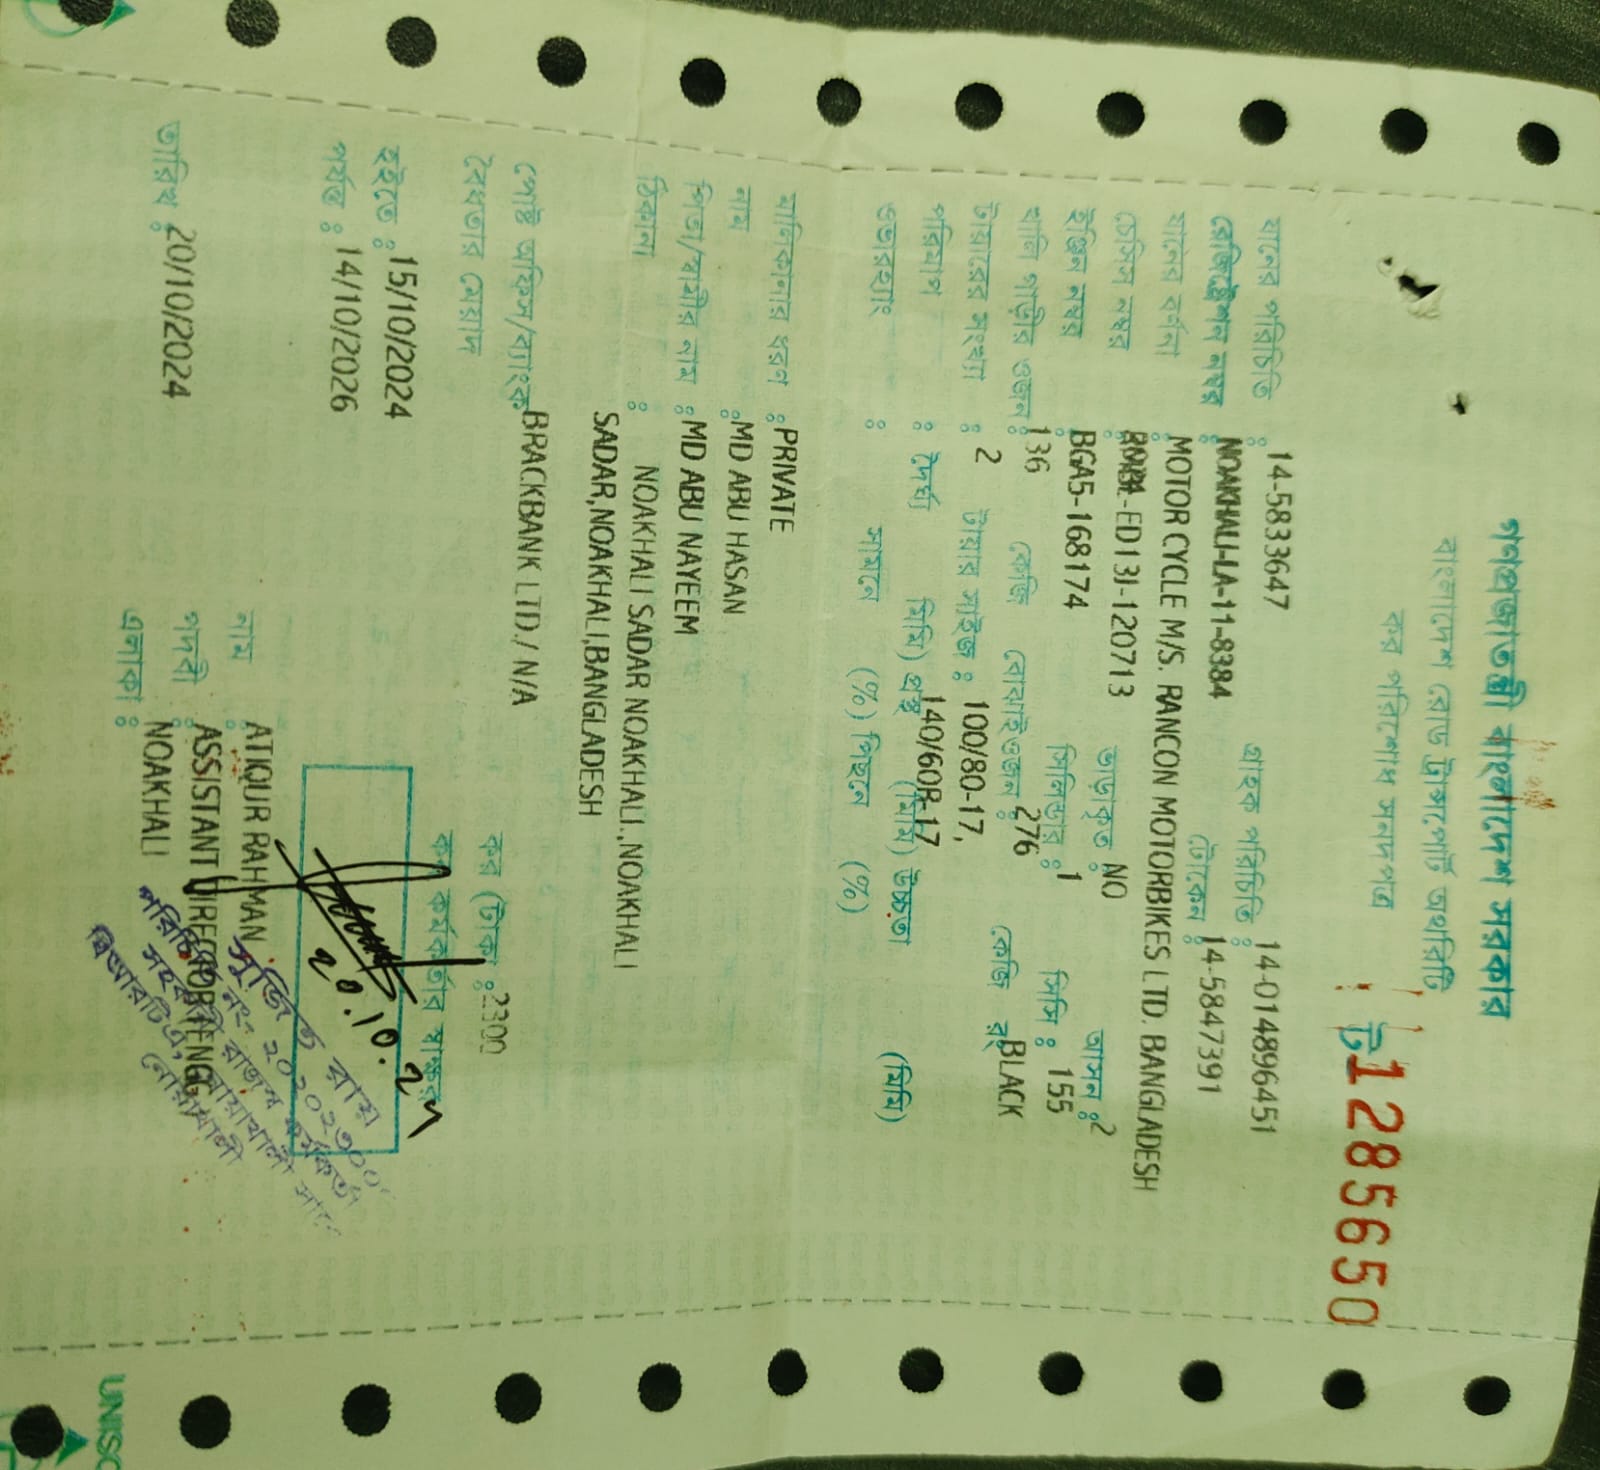 গণপ্রজাতন্ত্রী বাংলাদেশ সরকার
বাংলাদেশ রোড ট্রান্সপোর্ট অথরিটি
কর পরিশোধ সনদপত্র
ট 1285650
যানের পরিচিতি : 14-5833647 গ্রাহক পরিচিতি : 14-014896451
রেজিষ্ট্রেশন নম্বর : NOAKHALI-LA-11-8384 টোকেন : 14-5847391
যানের বর্ননা : MOTOR CYCLE M/S. RANCON MOTORBIKES LTD. BANGLADESH
চেসিস নম্বর : -ED13J-120713 ভাড়াকৃত : NO আসন : 2
ইঞ্জিন নম্বর : BGA5-168174 সিলিন্ডার : 1 সিসি : 155
খালি গাড়ীর ওজন : 136 কেজি বোঝাইওজন : 276 কেজি রং BLACK
টায়ারের সংখ্যা : 2 টায়ার সাইজ : 100/80-17,
140/60R-17
পরিমাপ : দৈর্ঘ্য (মিমি) প্রস্থ (মিমি) উচ্চতা (মিমি)
ওভারহ্যাং : সামনে (%) পিছনে (%)
মালিকানার ধরণ : PRIVATE
নাম : MD ABU HASAN
পিতা/স্বামীর নাম : MD ABU NAYEEM
ঠিকানা : NOAKHALI SADAR NOAKHALI.,NOAKHALI
SADAR,NOAKHALI,BANGLADESH
পোষ্ট অফিস/ব্যাংক BRACKBANK LTD./ N/A
বৈধতার মেয়াদ কর (টাকা : 2300
হইতে : 15/10/2024 কর কর্মকর্তার স্বাক্ষর
পর্যন্ত : 14/10/2026
20.10.2
তারিখ : 20/10/2024
নাম : ATIQUR RAHMAN
পদবী : ASSISTANT DIRECTOR(ENGG)
এলাকা : NOAKHALI
সুজিত রায়
পরিচিতি নং- ২০২০২৩০০
সহকারী রাজস্ব কর্মকর্তা
বিআরটিএ, নোয়াখালী
নোয়াখালী
UNISO